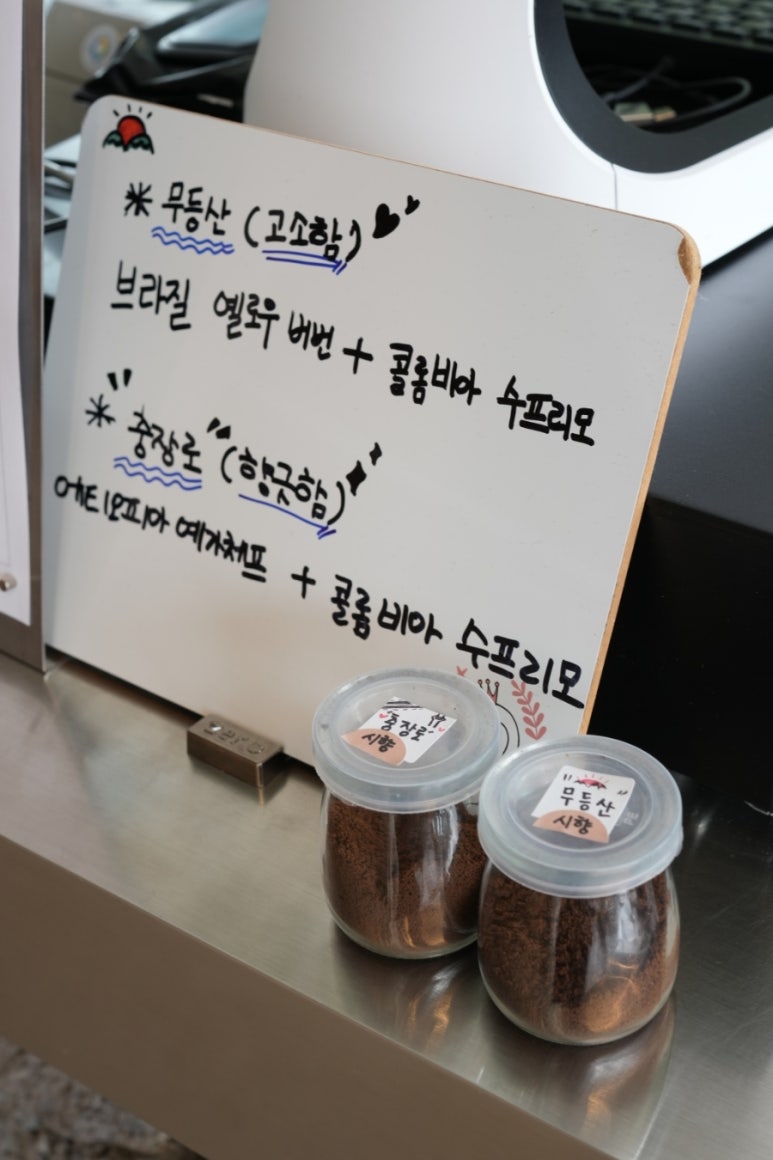 * 무등산 (고소함)
브라질 옐로우 버번 + 콜롬비아 수프리모
* "충장로" (향긋함)
에티오피아 예가체프 + 콜롬비아 수프리모
충장로
시향
"무등산"
시향